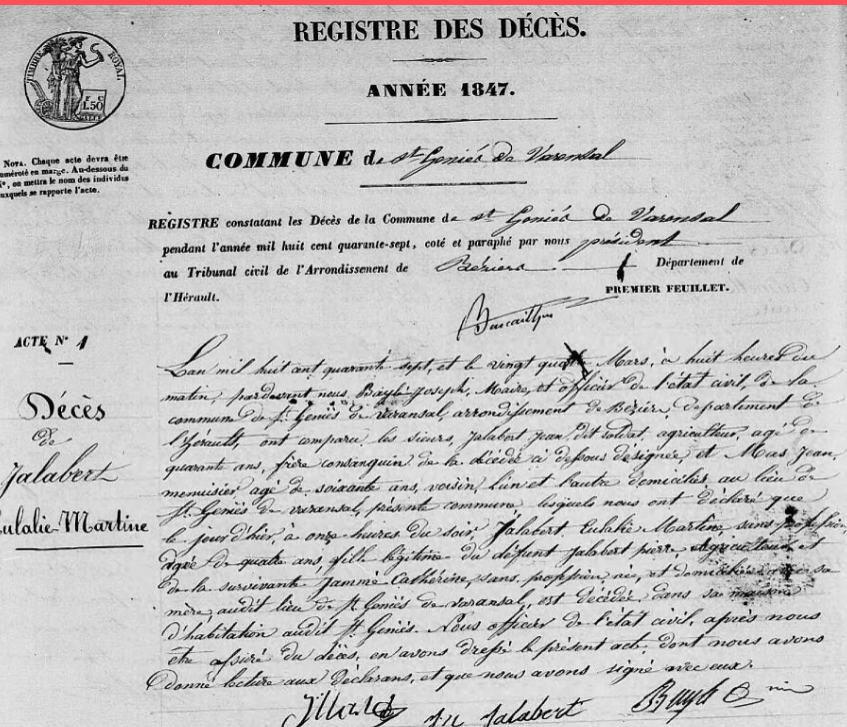 REGISTRE DES DÉCÈS.
TIMBRE ROYAL
F. C.
1.50
ANNÉE 1847.
Nota. Chaque acte devra être
numéroté en marge. Au-dessous du
N°, on mettra le nom des individus
auxquels se rapporte l'acte.
COMMUNE de St Geniés de Varensal
REGISTRE constatant les Décès de la Commune de St Geniés de Varensal
pendant l'année mil huit cent quarante-sept, coté et paraphé par nous président
au Tribunal civil de l'Arrondissement de Béziers Département de
l'Hérault.
PREMIER FEUILLET.
ACTE N° 1
Décès
de
Jalabert
Eulalie-Martine
L'an mil huit cent quarante sept, et le vingt quatre Mars, à huit heures du
matin, pardevant nous, Baylé Joseph, Maire, et officier de l'état civil, de la
commune de St Geniés de varansal, arrondissement de Béziers, département de
l'hérault, ont comparu les sieurs, Jalabert Jean, dit soldat, agriculteur, agé de
quarante ans, frère consanguin de la décédée ci dessous designée, et Mas Jean,
menuisier, agé de soixante ans, voisin, l'un et l'autre domiciliés au lieu de
St Geniés de varansal, présente commune, lesquels nous ont déclaré que
le jour d'hier, à onze heures du soir, Jalabert Eulalie Martine, sans profession,
agée de quatre ans, fille légitime du défunt Jalabert pierre agriculteur, et
de la survivante Jamme Catherine, sans profession, née, et domiciliée avec sa
mère, audit lieu de St Geniés de varansal, est décédée dans sa maison
d'habitation audit St Geniés. Nous officier de l'état civil, après nous
être assuré du décès, en avons dressé le présent acte, dont nous avons
donné lecture aux déclarans, et que nous avons signé avec eux.
Jalabert Baylé